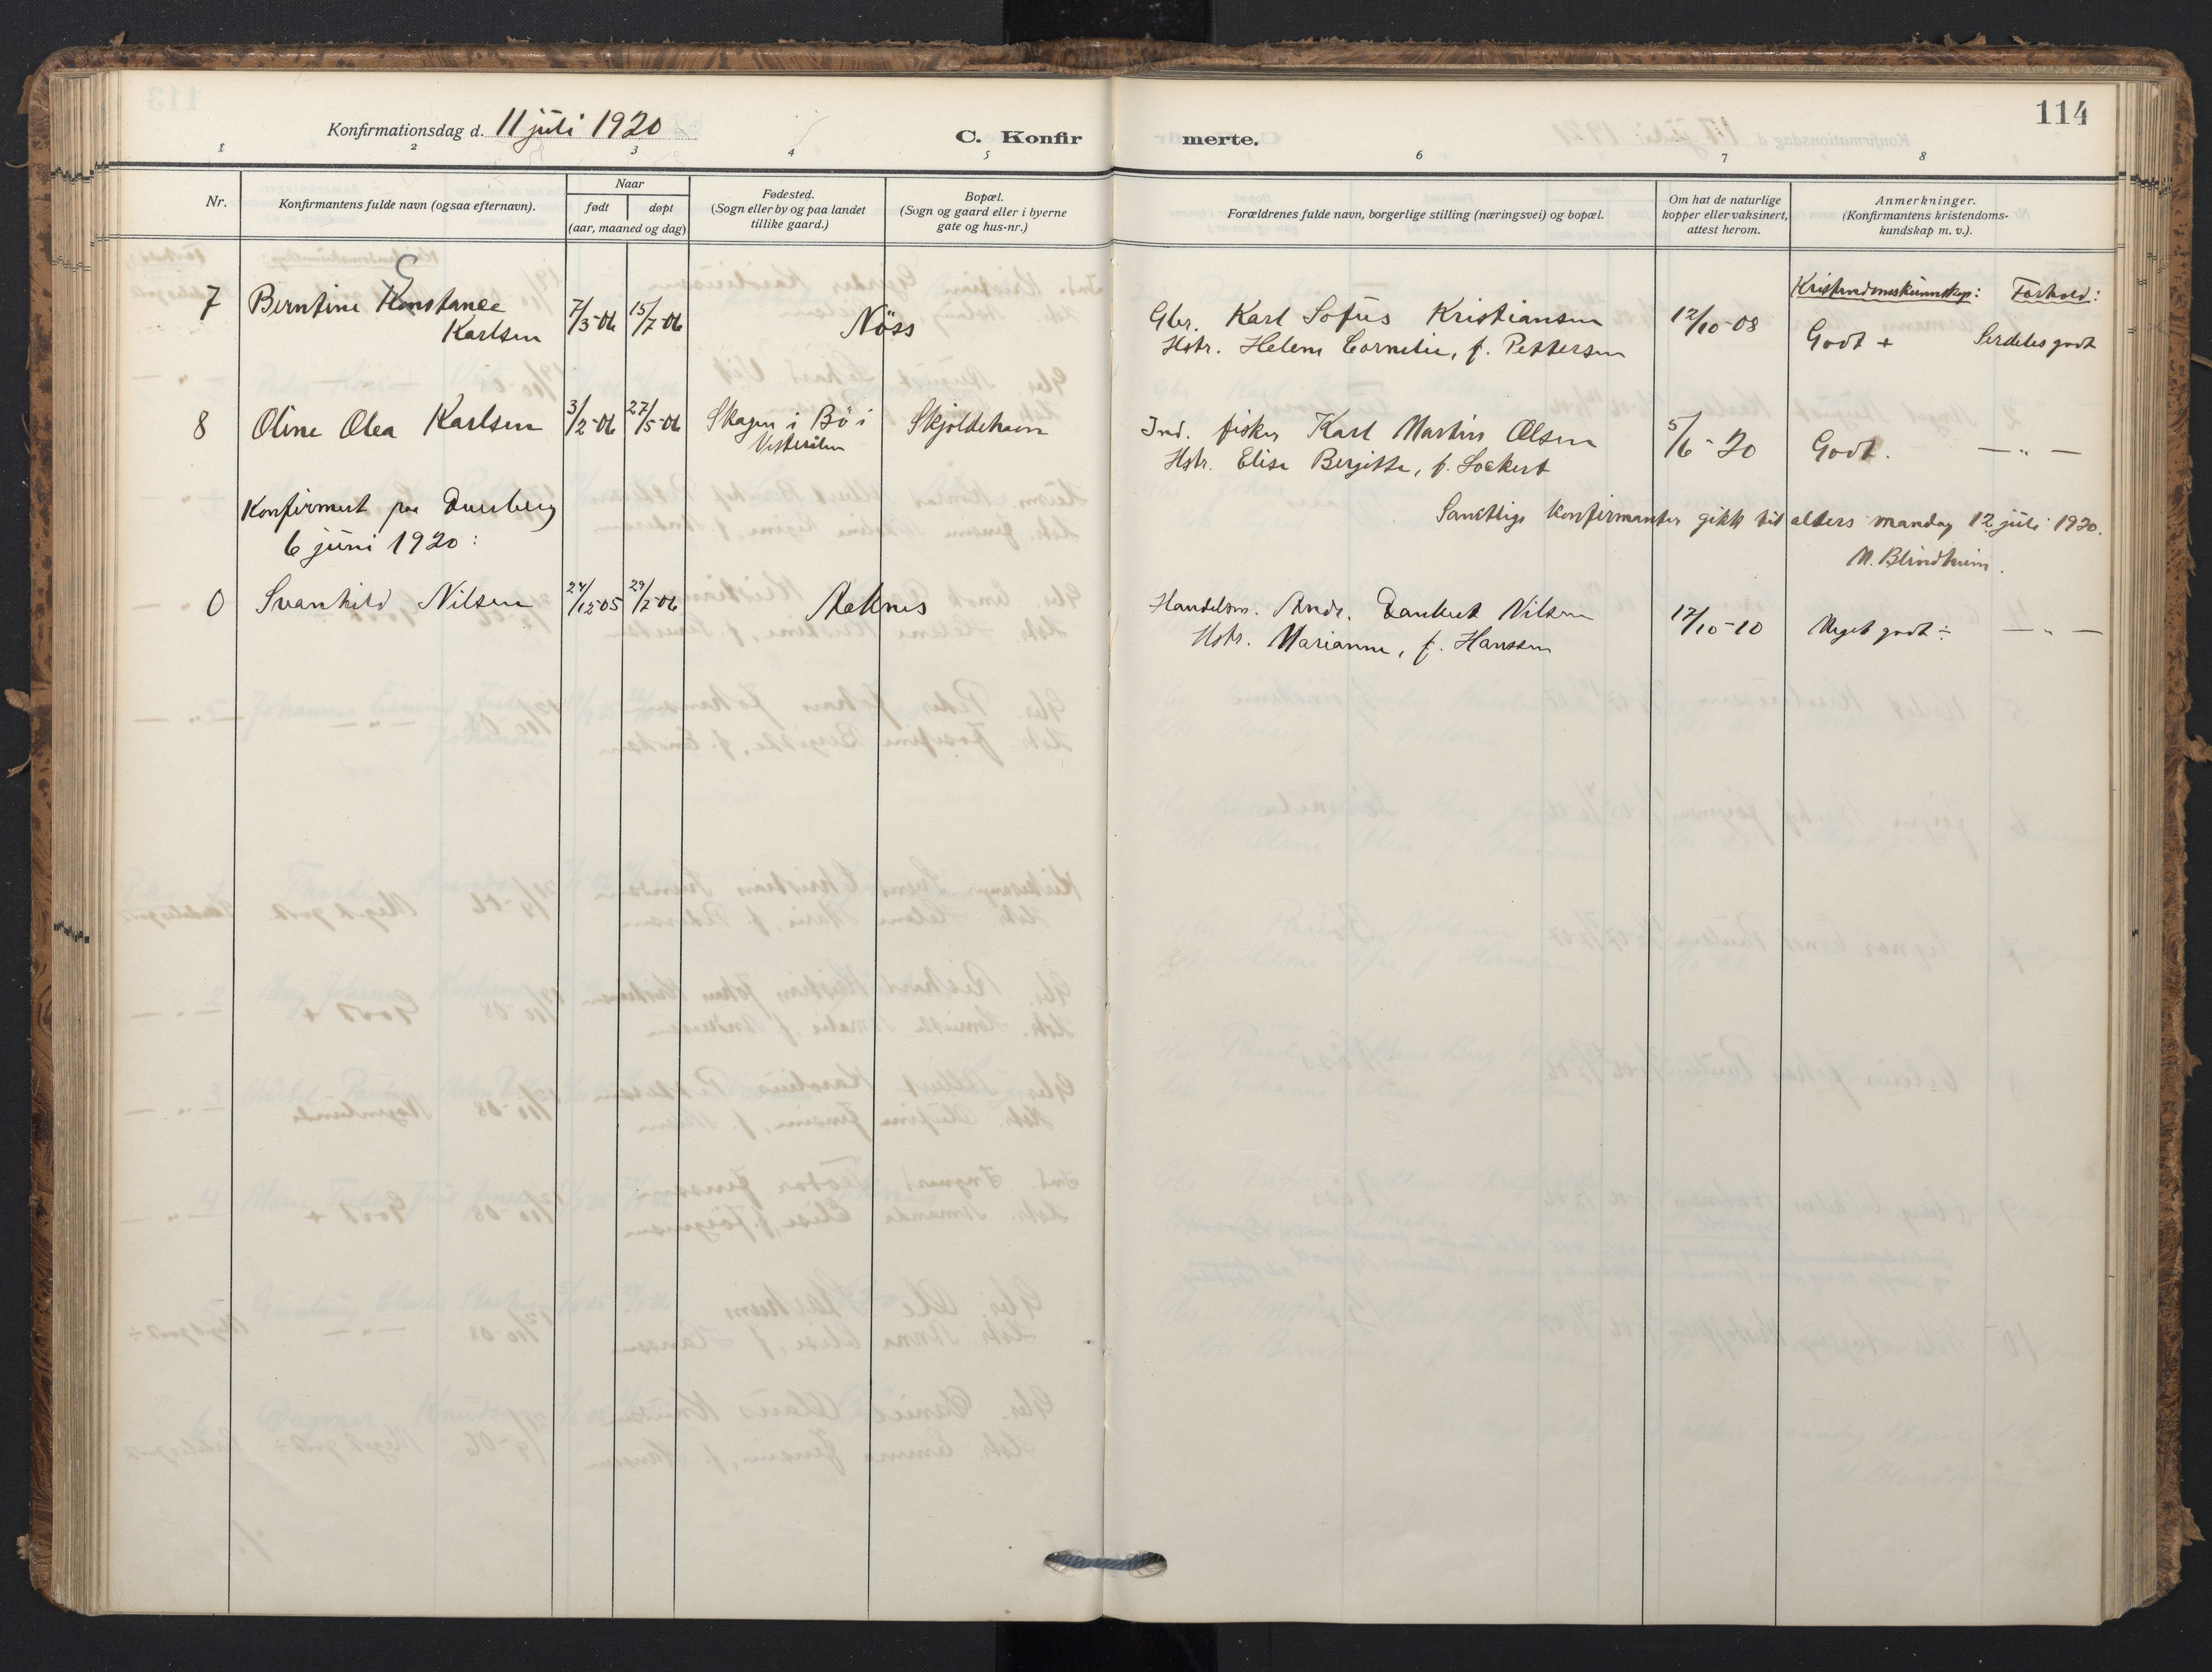 114
Konfirmationsdag d. 11 juli 1920
C. Konfirmerte.
1 2 3 4 5 6 7 8
Nr.
Konfirmantens fulde navn (ogsaa efternavn).
Naar
født
døpt
(aar, maaned og dag)
Fødested.
(Sogn eller by og paa landet
tillike gaard.)
Bopæl.
(Sogn og gaard eller i byerne
gate og hus-nr.)
Forældrenes fulde navn, borgerlige stilling (næringsvei) og bopæl.
Om hat de naturlige
kopper eller vaksinert,
attest herom.
Anmerkninger.
(Konfirmantens kristendoms-
kundskap m. v.).
Kristendomskunnskap: Forhold:
7 Berntine Konstance 7/3-06 15/7-06 Nöss Gbr. Karl Sofus Kristiansen 12/10-08 Godt + Serdeles godt
C
Karlsen Hstr. Helene Cornelie, f. Pettersen
8 Oline Olea Karlsen 3/2-06 27/5-06 Skagen i Bö i Skjoldehavn Ind. fisker Karl Martin Olsen 5/6-20 Godt. — " —
Vesterålen Hstr. Elise Bergitte, f. Lockert
Konfirmert paa
6 juni 1920:
Samtlige konfirmanter gikk til alters mandag 12 juli 1920.
M. Blindheim.
0 Svanhild Nilsen 24/12-05 29/7-06 Aaknes Handelsm. Andr. Dankert Nilsen 12/10-10 Meget godt ÷ — " —
Hstr. Marianne, f. Hanssen